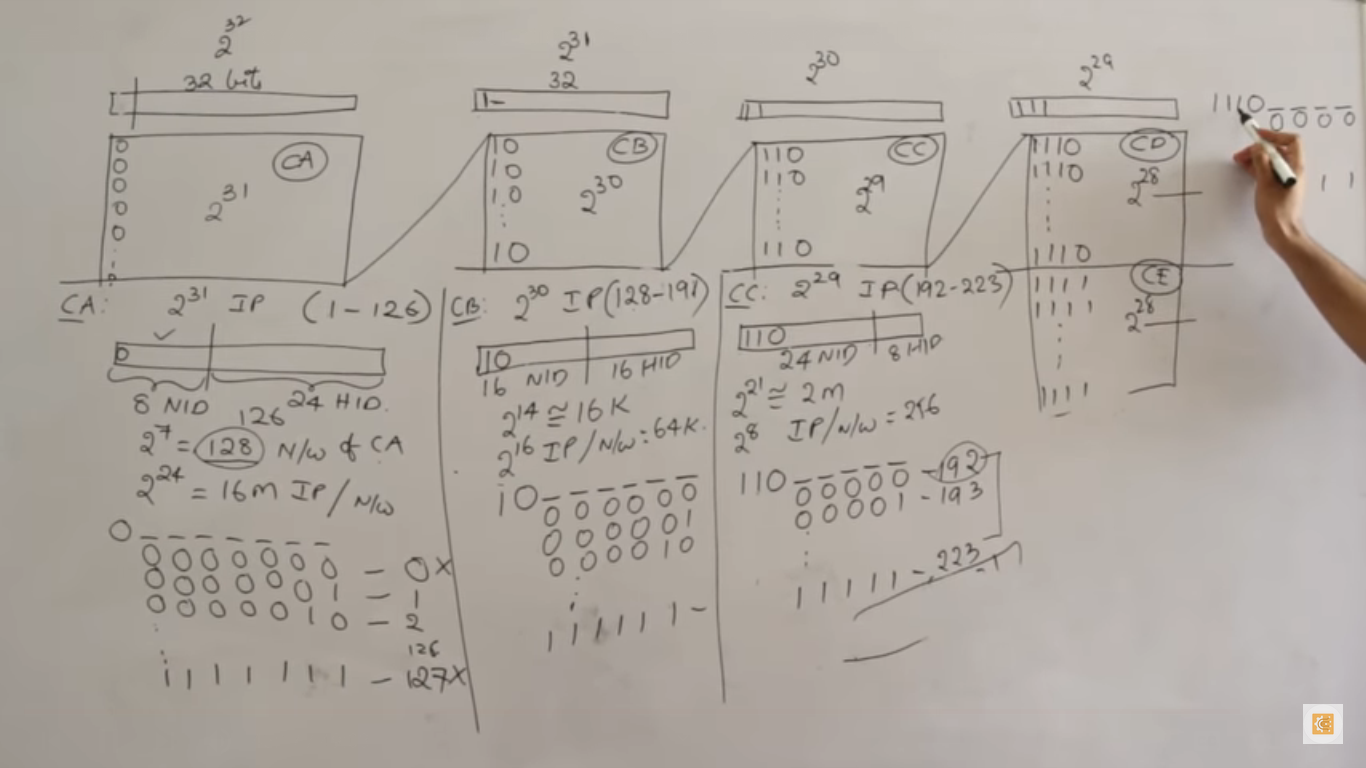 2^32
32 bit
0
0
0
0
0
0
CA
2^31
2^31
32
1-
10
10
10
10
CB
2^30
2^30
110
110
110
CC
2^29
2^29
111
1110
1110
1110
CD
2^28
1111
1111
1111
CE
2^28
1110 _ _ _ _
0 0 0 0
1 1
CA: 2^31 IP (1-126)
0
8 NID 24 HID.
126
2^7 = 128 N/W of CA
2^24 = 16M IP/N/W
0 _ _ _ _ _ _ _
0 0 0 0 0 0 0 - 0 X
0 0 0 0 0 0 1 - 1
0 0 0 0 0 1 0 - 2
126
1 1 1 1 1 1 1 - 127 X
CB: 2^30 IP (128-191)
10
16 NID 16 HID
2^14 ≅ 16 K
2^16 IP/N/W = 64K.
10 _ _ _ _ _ _
0 0 0 0 0 0
0 0 0 0 0 1
0 0 0 0 1 0
1 1 1 1 1 1 -
CC: 2^29 IP (192-223)
110
24 NID 8 HID
2^21 ≅ 2M
2^8 IP/N/W = 256
110 _ _ _ _ _
0 0 0 0 0 - 192
0 0 0 0 1 - 193
1 1 1 1 1 - 223